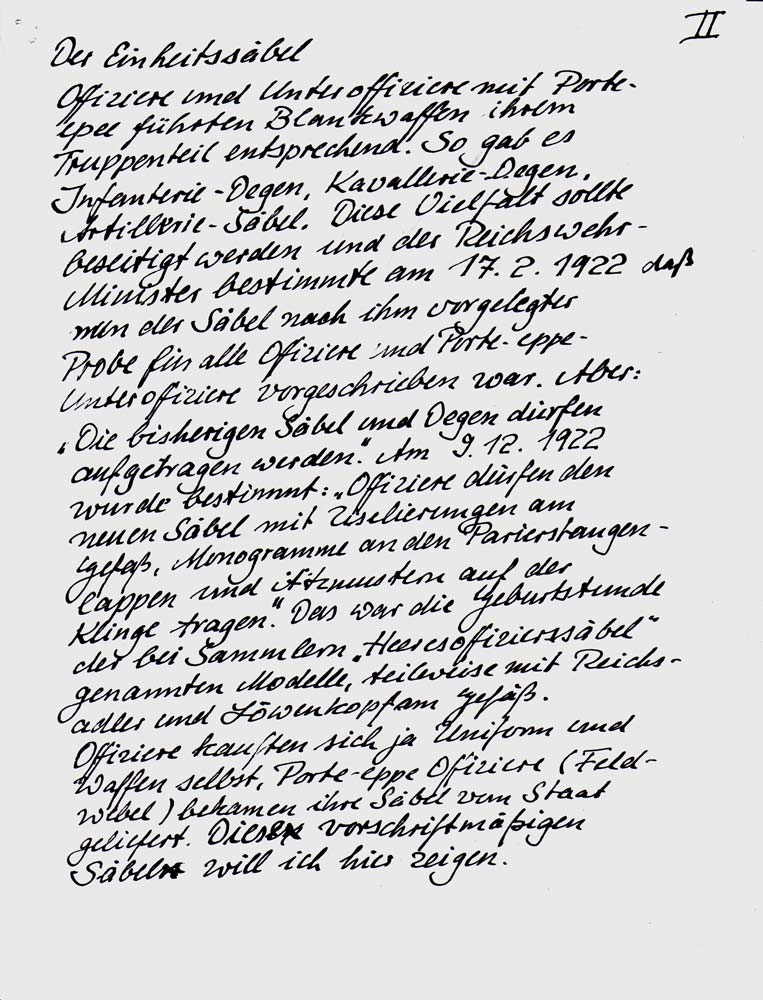 II
Der Einheitssäbel
Offiziere und Unteroffiziere mit Porte-
epee führten Blankwaffen ihrem
Truppenteil entsprechend. So gab es
Infanterie-Degen, Kavallerie-Degen,
Artillerie-Säbel. Diese Vielfalt sollte
beseitigt werden und der Reichswehr-
Minister bestimmte am 17. 2. 1922 daß
nun der Säbel nach ihm vorgelegter
Probe für alle Ofiziere und Porte-eppe-
Unterofiziere vorgeschrieben war. Aber:
„Die bisherigen Säbel und Degen dürfen
aufgetragen werden." Am 9. 12. 1922
wurde bestimmt: „Offiziere dürfen den
neuen Säbel mit Ziselierungen am
Gefäß, Monogramme an den Parierstangen-
lappen und Ätzmustern auf der
Klinge tragen." Das war die Geburtsstunde
der bei Sammlern „Heeresofizierssäbel"
genannten Modelle, teilweise mit Reichs-
adler und Löwenkopf am Gefäß.
Offiziere kauften sich ja Uniform und
Waffen selbst, Porte-eppe Ofiziere (Feld-
webel) bekamen ihre Säbel vom Staat
geliefert. Diesen vorschriftmäßigen
Säbel will ich hier zeigen.